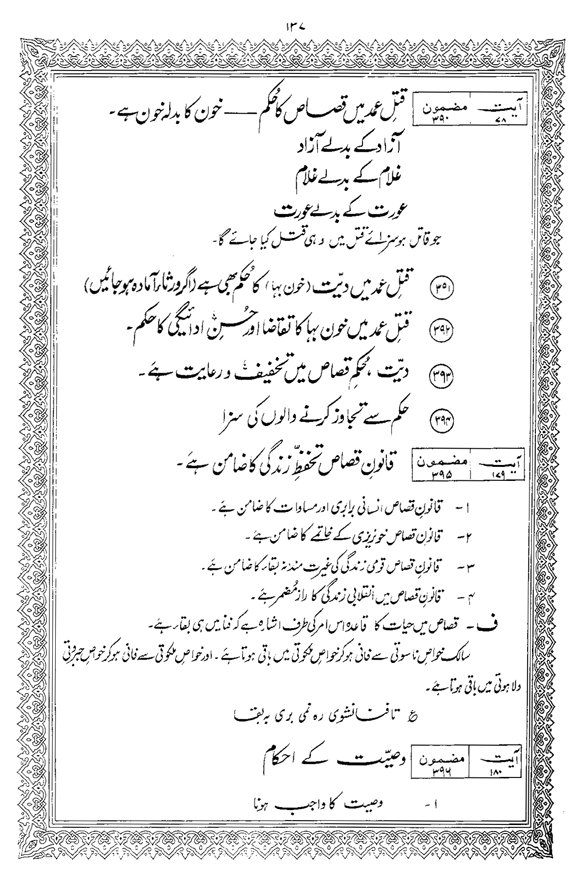 ۱۳۷
آیت ۷۸ مضمون ۳۹۰ قتل عمد میں قصاص کا حُکم — خون کا بدلہ خون ہے۔
آزاد کے بدلے آزاد
غلام کے بدلے غلام
عورت کے بدلے عورت
جو قاتل ہو سزائے قتل میں وہی قتل کیا جائے گا۔
۳۹۱ قتلِ عمد میں دیّت (خون بہا) کا حُکم بھی ہے (اگر ورثاء آمادہ ہو جائیں)
۳۹۲ قتلِ عمد میں خون بہا کا تقاضا اور حُسنِ ادائیگی کا حکم۔
۳۹۳ دیّت، حُکمِ قصاص میں تخفیف و رعایت ہے۔
۳۹۴ حکم سے تجاوز کرنے والوں کی سزا
آیت ۱۷۹ مضمون ۳۹۵ قانونِ قصاص تحفظِ زندگی کا ضامن ہے۔
۱- قانونِ قصاص انسانی برابری اور مساوات کا ضامن ہے۔
۲- قانونِ قصاص خونریزی کے خاتمے کا ضامن ہے۔
۳- قانونِ قصاص قومی زندگی کی غیرت مندانہ بقاء کا ضامن ہے۔
۴- قانونِ قصاص میں انقلابی زندگی کا راز مُضمر ہے۔
ف- قصاص میں حیات کا قاعدہ اس امر کی طرف اشارہ ہے کہ فنا میں ہی بقا ہے۔
سالک خواصِ ناسوتی سے فانی ہو کر خواصِ ملکوتی میں باقی ہوتا ہے۔ اور خواصِ ملکوتی سے فانی ہو کر خواصِ جبروتی
و لاہوتی میں باقی ہوتا ہے۔
ع تا فنا نشوی رہ نمی بری بہ بقا
آیت ۱۸۰ مضمون ۳۹۶ وصیّت کے احکام
۱- وصیت کا واجب ہونا